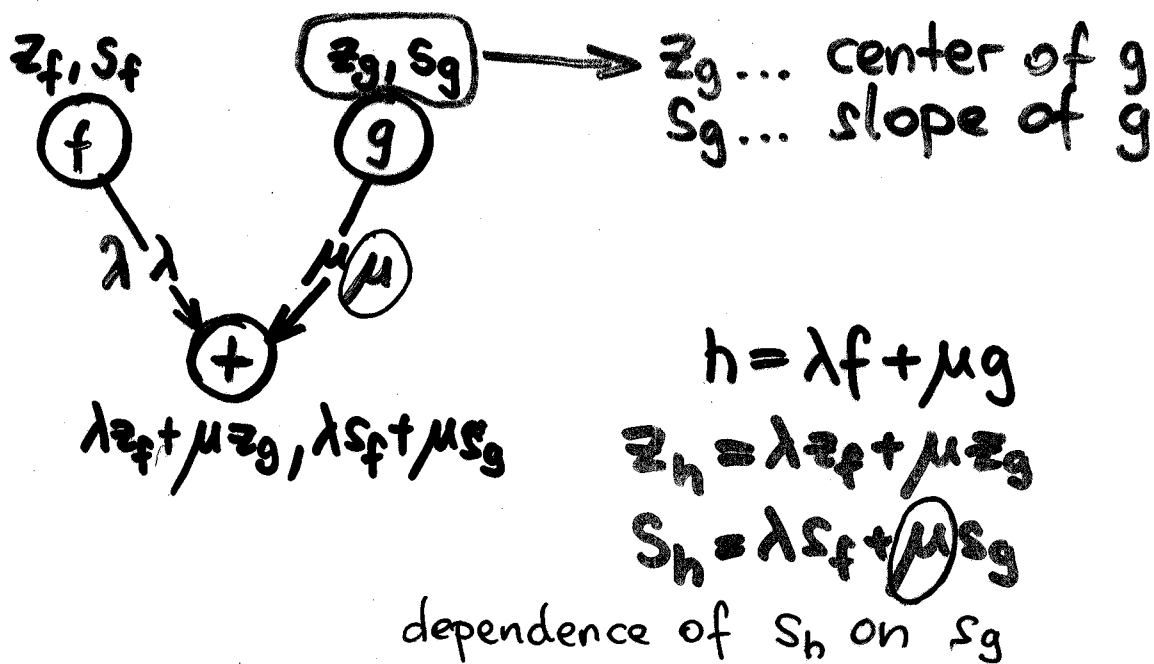 z_f, s_f
z_g, s_g
z_g ... center of g
s_g ... slope of g
f
g
λ λ
μ μ
+
λz_f + μz_g, λs_f + μs_g
h = λf + μg
z_h = λz_f + μz_g
s_h = λs_f + μs_g
dependence of s_h on s_g